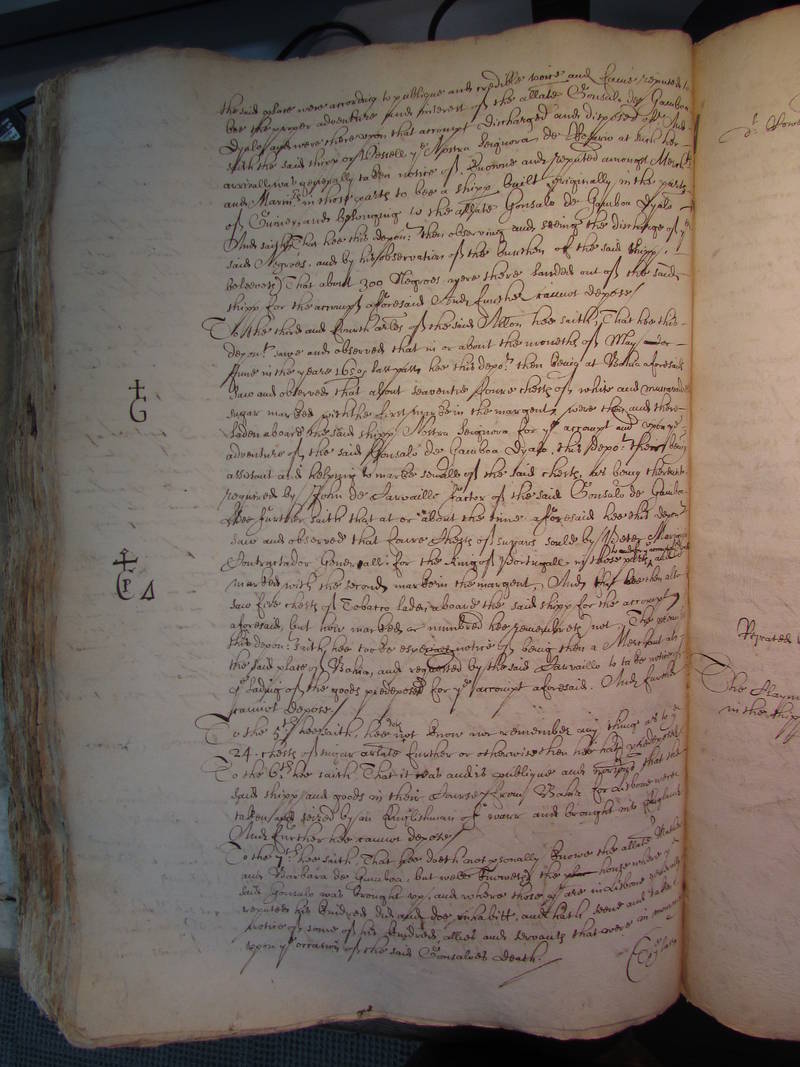 the said place were according to publique and credible voice and fame reputed to
bee the proper adventure and interest of the allate Gonsalo de Gamboa
Dyalo and were there upon that accompt discharged and disposed of. And
saith the said shipp or Vessell ye Nostra Seignora de at such her
arrivall was generally taken notice of knowne and reputed amongst Merchts
and Marinrs in those parts to bee a shipp built originally in the parts
of and belonging to the allate Gonsalo de Gamboa Dyalo
And saith That hee this depont then observing and seeing the discharge of ye
said Negroes, and by his observation of the burthen of the said shipp,
beleeveth That about 300 Negroes were there landed out of the said
shipp for the accompt aforesaid And further cannot depose/
To the third and fourth arles of the said Allon hee saith, That hee this
depont sawe and observed that in or about the moneths of May or
June in the yeare 1650 last past hee this depot then being at Bahia aforesaid
saw and observed that about seaventie foure chests of white and muscovado
sugar marked with the first marke in the margent, were then and there
laden aboard the said shipp Nostra Seignora for ye accompt and upon ye
adventure of the said Gonsalo de Gamboa Dyalo, this depot then being
assistant and helping to marke severall of the said chests, hee being thereunto
required by John de Carvaillo factor of the said Gonsalo de Gamboa
Hee further saith that at or about the time aforesaid hee this depont
saw and observed that foure chests of sugars
Contractador Generall for the King of Portugall in those parts
marked with the second marke in the margent, And hee then also
saw five chests of Tobacco laden aboard the said shipp for the accompt
aforesaid, but how marked or numbred hee remembreth not, The
this depon: saith hee tooke especiall notice of being then a Merchant att
the said place of Bahia, and requested by the said Carvaillo to take notice of
ye lading of the goods predeposed for ye accompt aforesaid. And further
cannot depose/
To the 5th hee saith, hee doth not know nor remember any thing as to ye
24 chests of sugar arlate further or otherwise then hee hath predeposed
To the 6th hee saith That it was and is publique and notorious that the
said shipp and goods in their Course from Bahia for Lisbone were
taken and seized by an Englishman of warr and brought into England
And further hee cannot depose/
To the 7th hee saith That hee doth not psonally knowe the allate
and Barbara de Gamboa, but well knoweth the house where ye
said Gonsalo was brought up, and where those yt are in Lisbone
reputed his kindred did and doe inhabitt, and hath seene and taken
notice of some of his kindred, allies and servants that were in
upon ye occasion of the said Gonsaloes Death.
G
CP Δ
Repeated
The Claym
in the ship